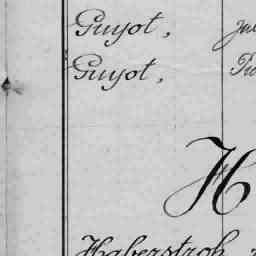 Guyot, Jul
Guyot,
H
Haberstroh,